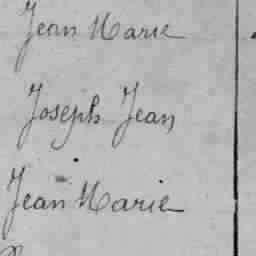 Jean Marie
Joseph Jean
Jean Marie